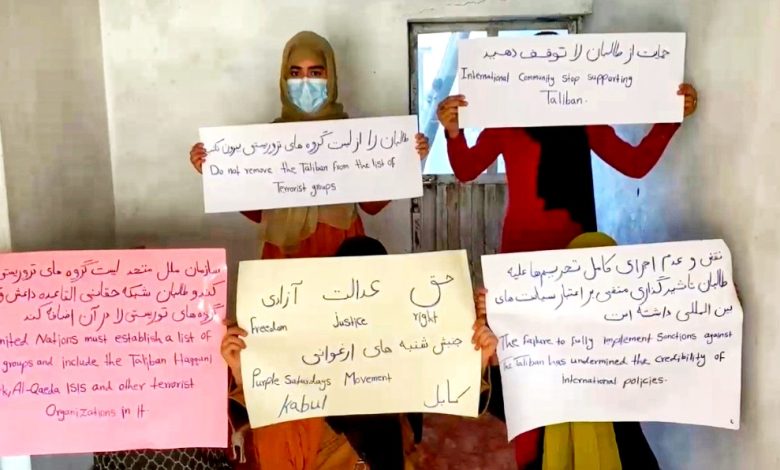 حمایت از طالبان را توقف دهید
International Community stop supporting
Taliban.
طالبان را از لیست گروه های تروریستی بیرون نکنید
Do not remove the Taliban from the list of
Terrorist groups
سازمان ملل متحد لیست گروه های تروریستی
کند و طالبان شبکه حقانی القاعده داعش و
گروه های توریستی را در آن اضافه کند
United Nations must establish a list of
groups and include the Taliban Haqqani
Al-Qaeda ISIS and other terrorist
Organizations in It.
حق عدالت آزادی
Freedom Justice right
جنبش شنبه های ارغوانی
Purple Saturdays Movement
Kabul کابل
نقض و عدم اجرای کامل تحریم‌ها علیه
طالبان تاثیر گذاری منفی بر اعتبار سیاست های
بین المللی داشته است
The failure to fully implement Sanctions against
the Taliban has undermined the credibility of
International policies.